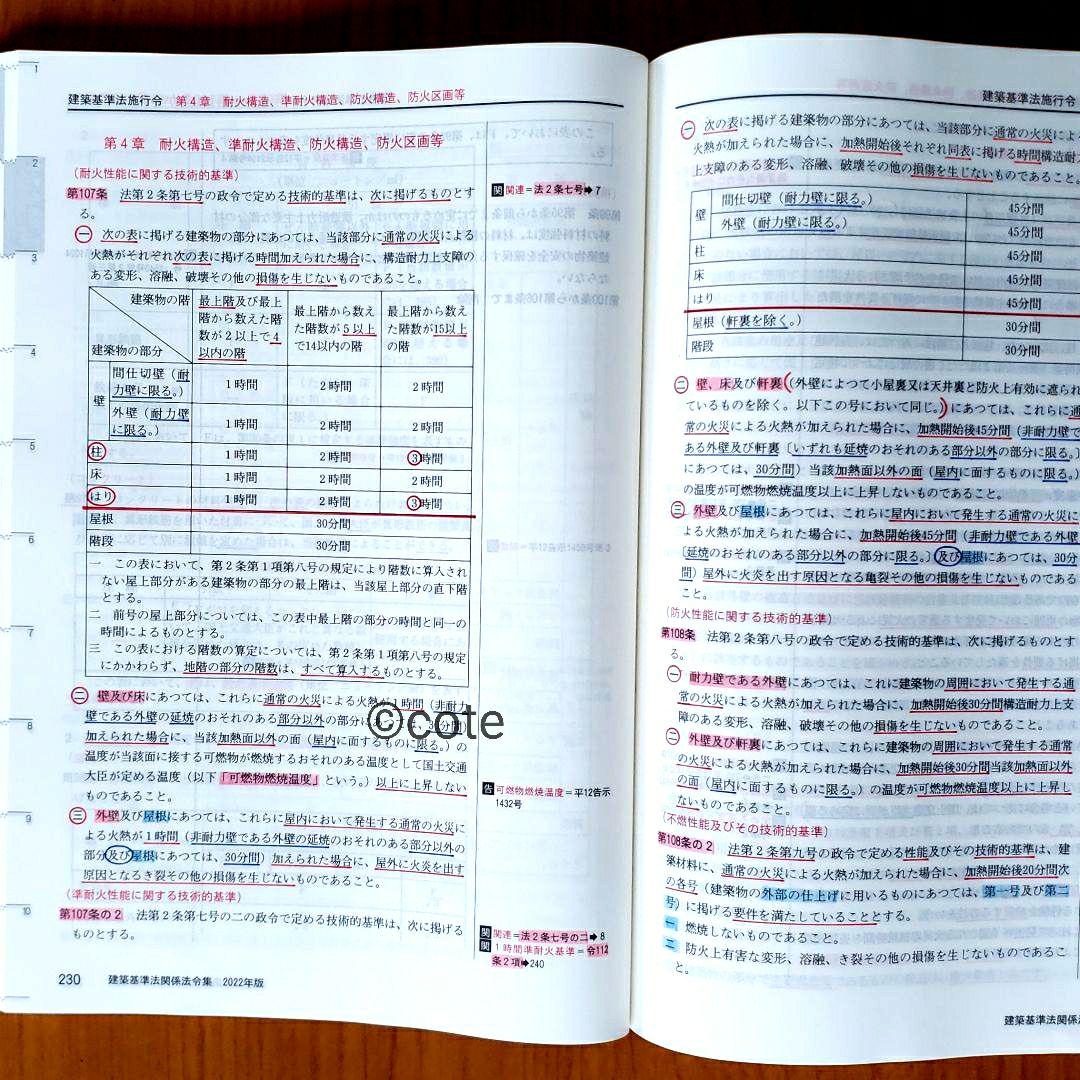 建築基準法施行令 第4章 耐火構造、準耐火構造、防火構造、防火区画等
第4章 耐火構造、準耐火構造、防火構造、防火区画等
(耐火性能に関する技術的基準)
第107条 法第2条第七号の政令で定める技術的基準は、次に掲げるものとす
る。
一 次の表に掲げる建築物の部分にあつては、当該部分に通常の火災による
火熱がそれぞれ次の表に掲げる時間加えられた場合に、構造耐力上支障の
ある変形、溶融、破壊その他の損傷を生じないものであること。
建築物の階
建築物の部分
最上階及び最上
階から数えた階
数が2以上で4
以内の階
最上階から数え
た階数が5以上
で14以内の階
最上階から数え
た階数が15以上
の階
壁
間仕切壁(耐
力壁に限る。)
1時間 2時間 2時間
外壁(耐力壁
に限る。)
1時間 2時間 2時間
柱 1時間 2時間 3時間
床 1時間 2時間 2時間
はり 1時間 2時間 3時間
屋根 30分間
階段 30分間
一 この表において、第2条第1項第八号の規定により階数に算入され
ない屋上部分がある建築物の部分の最上階は、当該屋上部分の直下階
とする。
二 前号の屋上部分については、この表中最上階の部分の時間と同一の
時間によるものとする。
三 この表における階数の算定については、第2条第1項第八号の規定
にかかわらず、地階の部分の階数は、すべて算入するものとする。
二 壁及び床にあつては、これらに通常の火災による火熱が1時間(非耐力
壁である外壁の延焼のおそれのある部分以外の部分に 30分間)
加えられた場合に、当該加熱面以外の面(屋内に面するものに限る。)の
温度が当該面に接する可燃物が燃焼するおそれのある温度として国土交通
大臣が定める温度(以下「可燃物燃焼温度」という。)以上に上昇しない
ものであること。
三 外壁及び屋根にあつては、これらに屋内において発生する通常の火災に
よる火熱が1時間(非耐力壁である外壁の延焼のおそれのある部分以外の
部分及び屋根にあつては、30分間)加えられた場合に、屋外に火炎を出す
原因となるき裂その他の損傷を生じないものであること。
(準耐火性能に関する技術的基準)
第107条の2 法第2条第七号の二の政令で定める技術的基準は、次に掲げる
ものとする。
230 建築基準法関係法令集 2022年版
関 関連=法2条七号➡7
告 可燃物燃焼温度=平12告示
1432号
関 関連=法2条七号の二➡8
関 1時間準耐火基準=令112
条2項➡240
©cote
建築基準法施行令
一 次の表に掲げる建築物の部分にあつては、当該部分に通常の火災によ
火熱が加えられた場合に、加熱開始後それぞれ同表に掲げる時間構造耐
上支障のある変形、溶融、破壊その他の損傷を生じないものであること。
壁
間仕切壁(耐力壁に限る。) 45分間
外壁(耐力壁に限る。) 45分間
柱 45分間
床 45分間
はり 45分間
屋根(軒裏を除く。) 30分間
階段 30分間
二 壁、床及び軒裏(外壁によつて小屋裏又は天井裏と防火上有効に遮られ
ているものを除く。以下この号において同じ。)にあつては、これらに通
常の火災による火熱が加えられた場合に、加熱開始後45分間(非耐力壁で
ある外壁及び軒裏〔いずれも延焼のおそれのある部分以外の部分に限る。〕
にあつては、30分間)当該加熱面以外の面(屋内に面するものに限る。)
の温度が可燃物燃焼温度以上に上昇しないものであること。
三 外壁及び屋根にあつては、これらに屋内において発生する通常の火災に
よる火熱が加えられた場合に、加熱開始後45分間(非耐力壁である外壁
〔延焼のおそれのある部分以外の部分に限る。〕及び屋根にあつては、30分
間)屋外に火炎を出す原因となる亀裂その他の損傷を生じないものである
こと。
(防火性能に関する技術的基準)
第108条 法第2条第八号の政令で定める技術的基準は、次に掲げるものとす
る。
一 耐力壁である外壁にあつては、これに建築物の周囲において発生する通
常の火災による火熱が加えられた場合に、加熱開始後30分間構造耐力上支
障のある変形、溶融、破壊その他の損傷を生じないものであること。
二 外壁及び軒裏にあつては、これらに建築物の周囲において発生する通常
の火災による火熱が加えられた場合に、加熱開始後30分間当該加熱面以外
の面(屋内に面するものに限る。)の温度が可燃物燃焼温度以上に上昇し
ないものであること。
(不燃性能及びその技術的基準)
第108条の2 法第2条第九号の政令で定める性能及びその技術的基準は、建
築材料に、通常の火災による火熱が加えられた場合に、加熱開始後20分間次
の各号(建築物の外部の仕上げに用いるものにあつては、第一号及び第二
号)に掲げる要件を満たしていることとする。
一 燃焼しないものであること。
二 防火上有害な変形、溶融、き裂その他の損傷を生じないものであるこ
と。
建築基準法関係
1
2
3
4
5
6
7
8
9
10